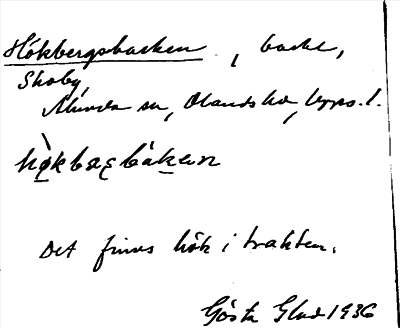 Hökbergsbacken, backe,
Skoby,
Alunda sn, Olands hd, Upps. l.
hø̀kbærbàkan
Det finns hök i trakten.
Gösta Glad 1936